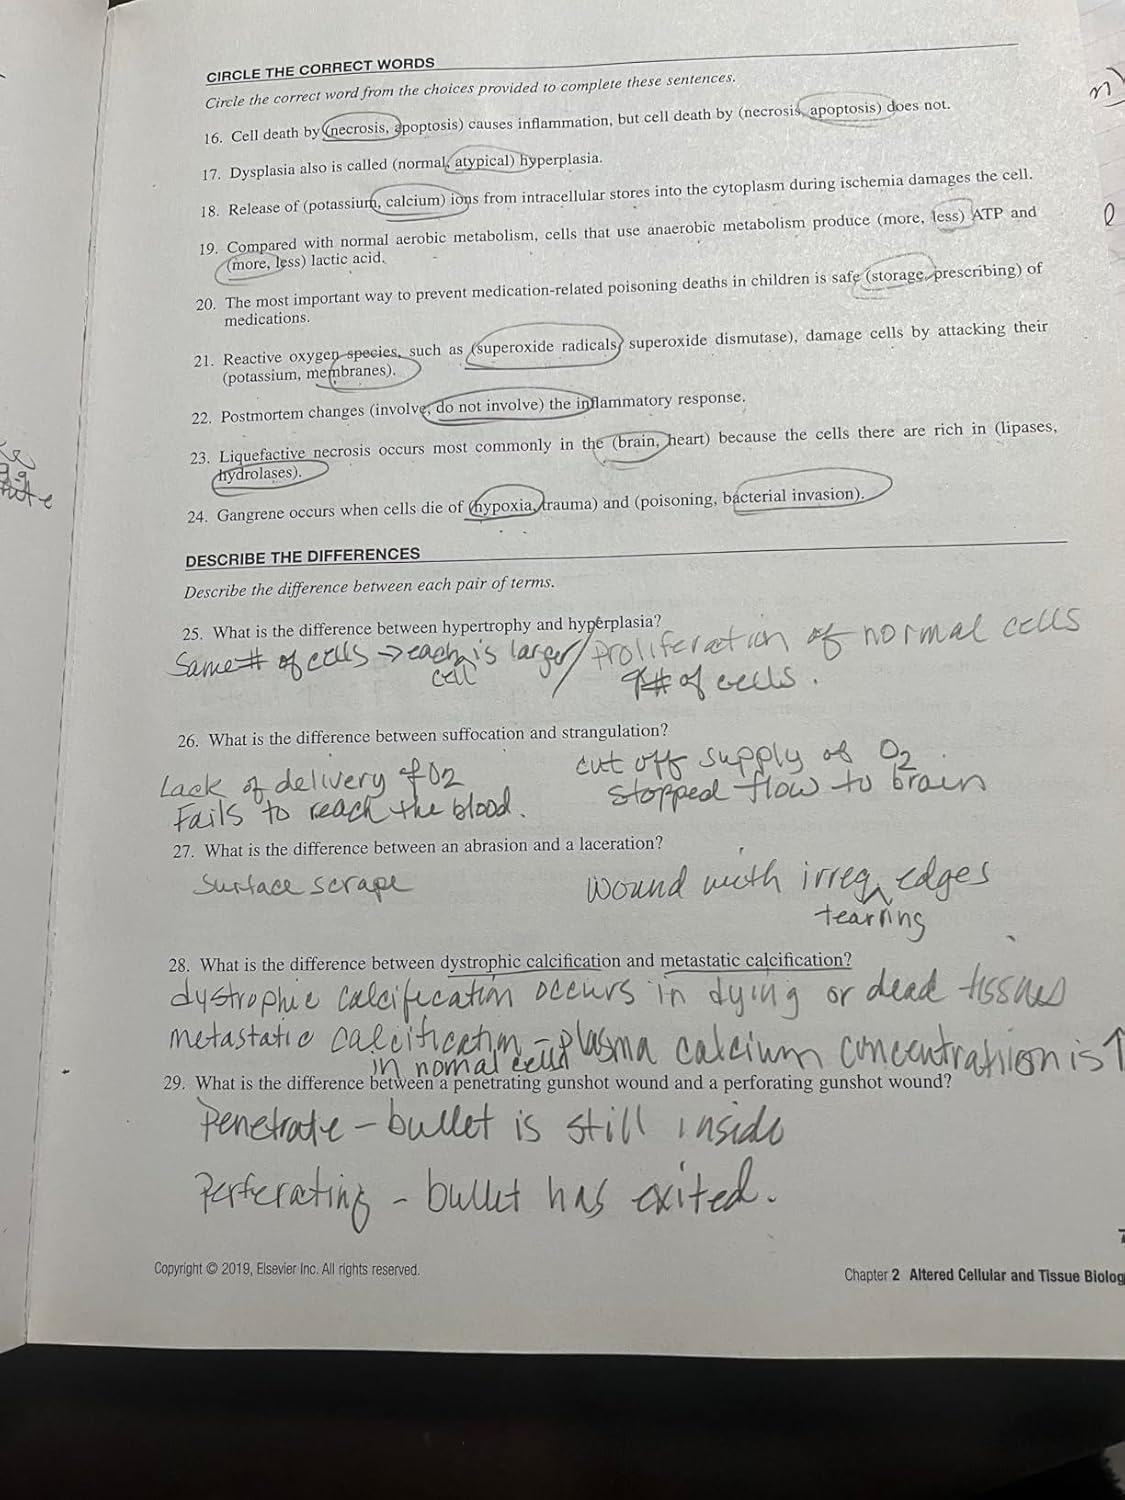 CIRCLE THE CORRECT WORDS
Circle the correct word from the choices provided to complete these sentences.
16. Cell death by (necrosis, apoptosis) causes inflammation, but cell death by (necrosis, apoptosis) does not.
17. Dysplasia also is called (normal, atypical) hyperplasia.
18. Release of (potassium, calcium) ions from intracellular stores into the cytoplasm during ischemia damages the cell.
19. Compared with normal aerobic metabolism, cells that use anaerobic metabolism produce (more, less) ATP and
(more, less) lactic acid.
20. The most important way to prevent medication-related poisoning deaths in children is safe (storage, prescribing) of
medications.
21. Reactive oxygen species, such as (superoxide radicals, superoxide dismutase), damage cells by attacking their
(potassium, membranes).
22. Postmortem changes (involve, do not involve) the inflammatory response.
23. Liquefactive necrosis occurs most commonly in the (brain, heart) because the cells there are rich in (lipases,
hydrolases).
24. Gangrene occurs when cells die of (hypoxia, trauma) and (poisoning, bacterial invasion).
DESCRIBE THE DIFFERENCES
Describe the difference between each pair of terms.
25. What is the difference between hypertrophy and hyperplasia?
Same # of cells → each is larger / proliferation of normal cells
cell # of cells.
26. What is the difference between suffocation and strangulation?
Lack of delivery of O2 cut off supply of O2
Fails to reach the blood. stopped flow to brain
27. What is the difference between an abrasion and a laceration?
Surface scrape wound with irreg. edges
tearring
28. What is the difference between dystrophic calcification and metastatic calcification?
dystrophic calcification occurs in dying or dead tissues
metastatic calcification - plasma calcium concentratiion is ↑
in nomal cells
29. What is the difference between a penetrating gunshot wound and a perforating gunshot wound?
Penetrate - bullet is still inside
Perferating - bullet has exited.
Copyright © 2019, Elsevier Inc. All rights reserved.
Chapter 2 Altered Cellular and Tissue Biolog